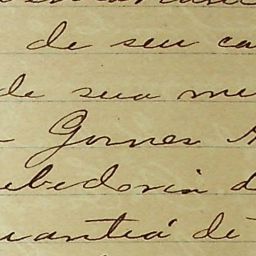 de seu ca
de sua me
Gomes
ebedoria d
uantia de